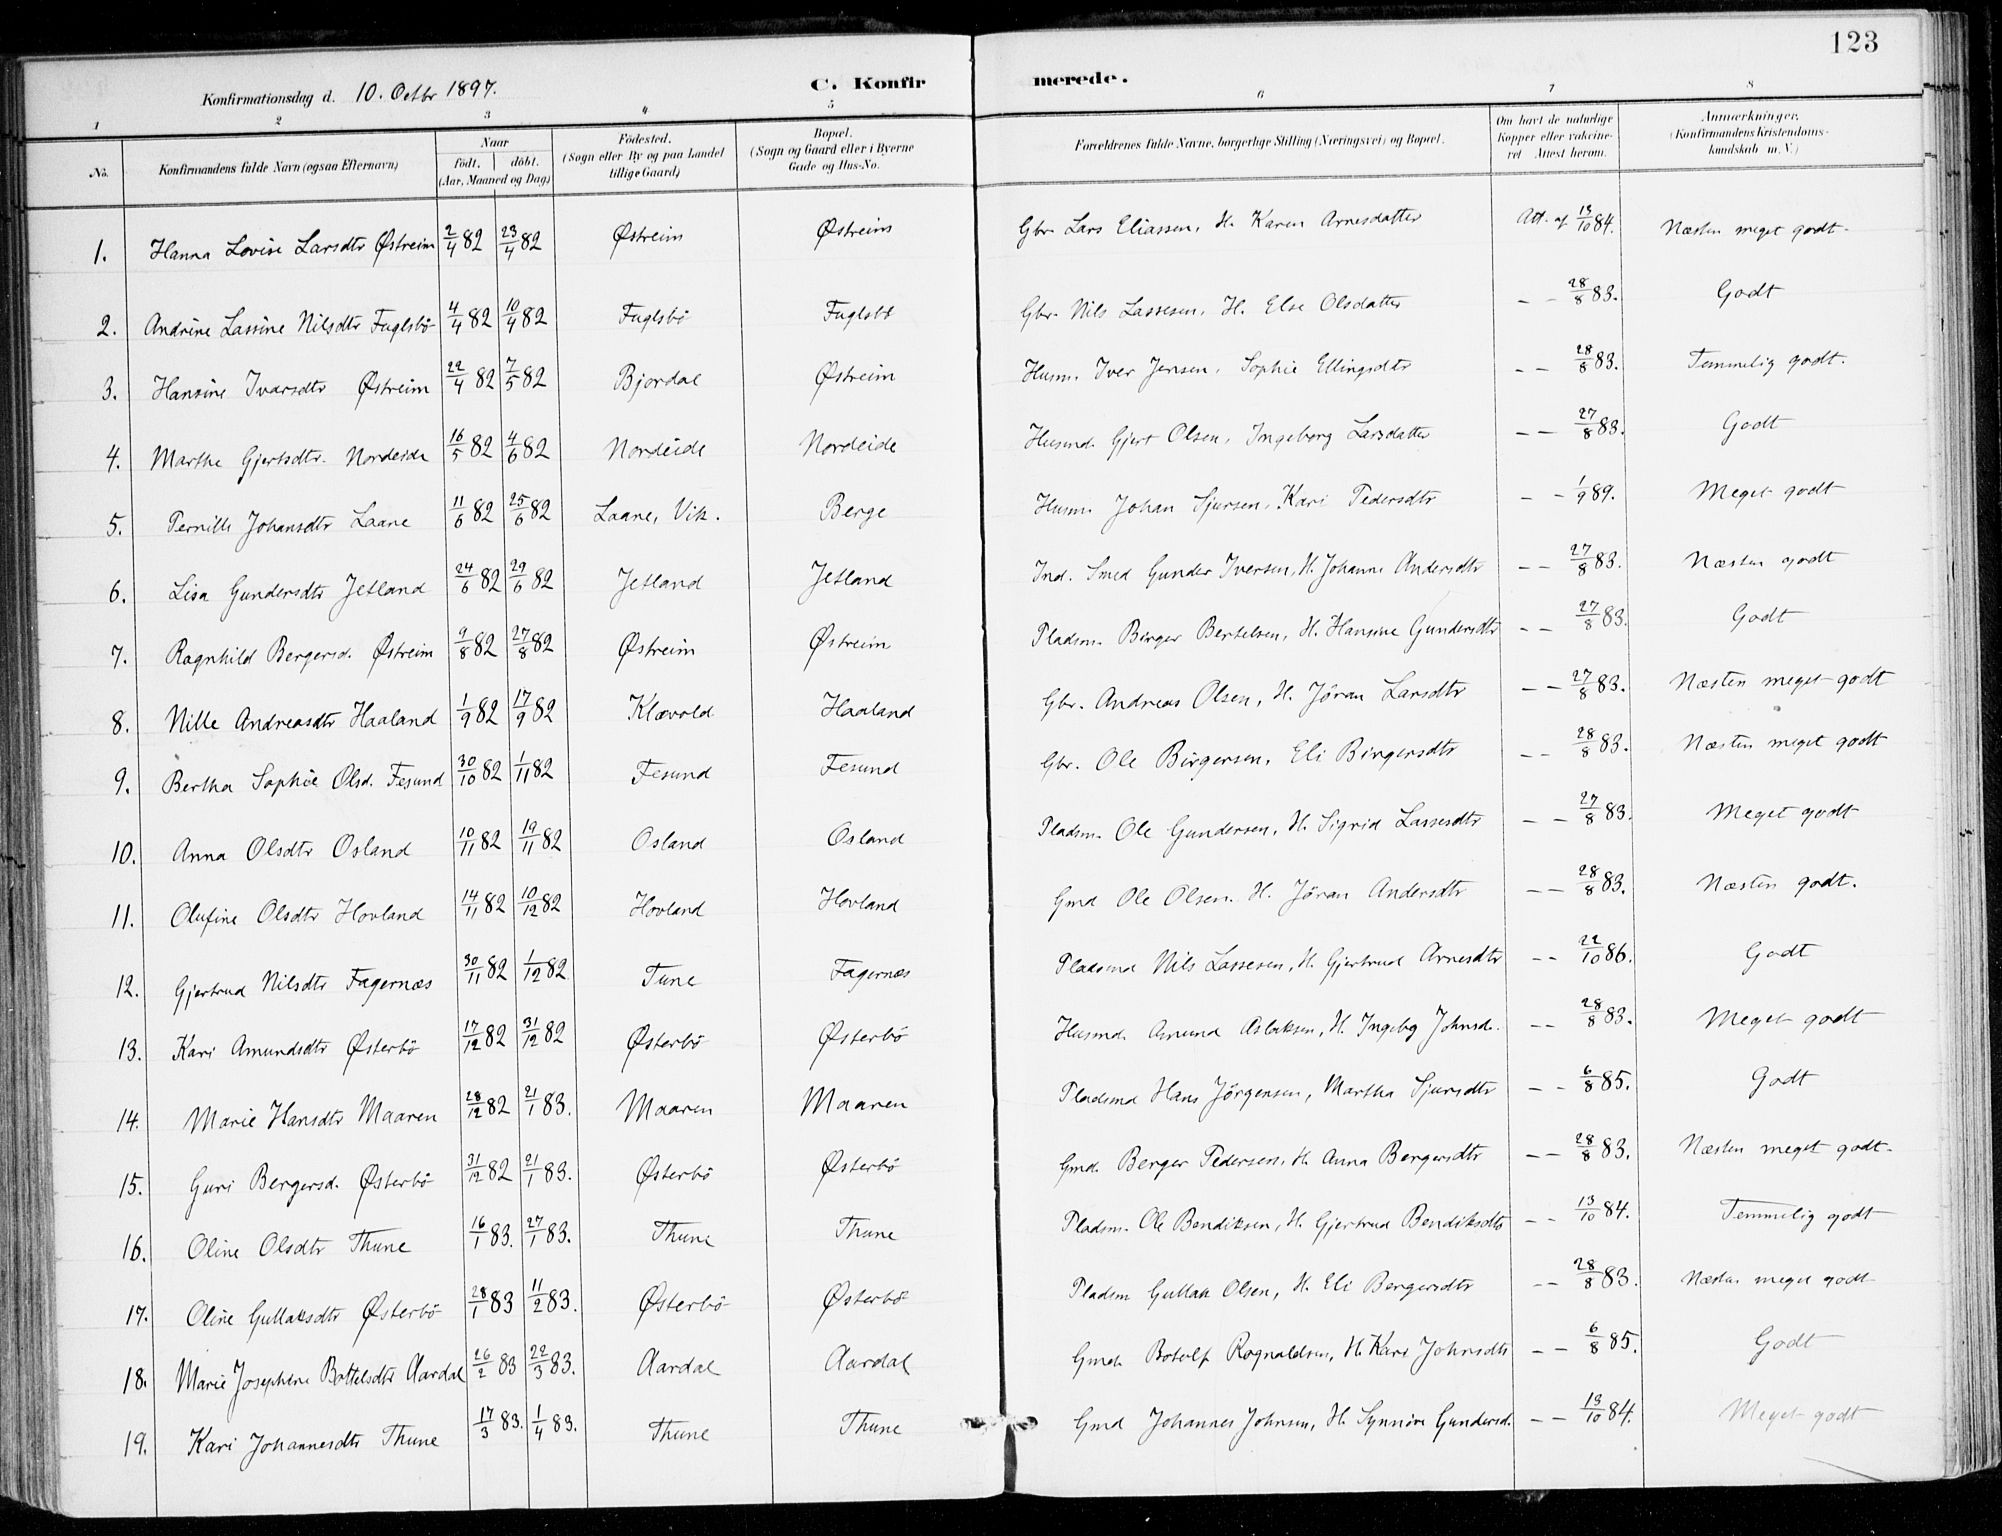 123
Konfirmationsdag d. 10. Octbr 1897. C. Konfirmerede.
1 2 3 4 5 6 7 8
No. Konfirmandens fulde Navn (ogsaa Efternavn) Naar født. døbt. (Aar, Maaned og Dag) Fødested. (Sogn eller By og paa Landet tillige Gaard) Bopæl. (Sogn og Gaard eller i Byerne Gade og Hus-No. Forældrenes fulde Navne, borgerlige Stilling (Næringsvei) og Bopæl. Om havt de naturlige Kopper eller vakcineret Attest herom. Anmærkninger, (Konfirmandens Kristendomskundskab m. V.)
1. Hanna Lovise Larsdtr Østreim 2/4 82 23/4 82 Østreim Østreim Gbr. Lars Eliassen, H. Karen Arnesdatter Att. af 13/10 84. Næsten meget godt.
2. Andrine Lassine Nilsdtr Fuglsbö 4/4 82 10/4 82 Fuglsbö Fuglsbö Gbr. Nils Lassesen, H. Else Olsdatter — — 28/8 83. Godt
3. Hansine Ivarsdtr Østreim 22/4 82 7/5 82 Bjordal Østreim Husm. Iver Jensen, Sophie Ellingsdtr — — 28/8 83. Temmelig godt.
4. Marthe Gjertsdtr. Nordeide 16/5 82 4/6 82 Nordeide Nordeide Husmd. Gjert Olsen, Ingeborg Larsdatter — — 27/8 83. Godt
5. Pernille Johansdtr Laane 11/6 82 25/6 82 Laane, Vik. Berge Husm. Johan Sjursen, Kari Pedersdtr — — 1/9 89. Meget godt
6. Lisa Gundersdtr Jetland 24/6 82 29/6 82 Jetland Jetland Ind. Smed Gunder Iversen, H. Johanne Andersdtr — — 27/8 83. Næsten godt
7. Ragnhild Bergersd. Østreim 9/8 82 27/8 82 Østreim Østreim Pladsm. Birger Bertelsen, H. Hansine Gundersdtr — — 27/8 83. Godt
8. Nille Andreasdtr Haaland 1/9 82 17/9 82 Klævold Haaland Gbr. Andreas Olsen, H. Jöran Larsdtr — — 27/8 83. Næsten meget godt
9. Bertha Sophie Olsd. Fesund 30/10 82 1/11 82 Fesund Fesund Gbr. Ole Birgersen, Eli Birgersdtr — — 28/8 83. Næsten meget godt
10. Anna Olsdtr Osland 10/11 82 19/11 82 Osland Osland Pladsm. Ole Gundersen, H. Sigrid Lassesdtr — — 27/8 83. Meget godt
11. Olufine Olsdtr Hovland 14/11 82 10/12 82 Hovland Hovland Gmd Ole Olsen. H. Jöran Andersdtr — — 28/8 83. Næsten godt.
12. Gjertrud Nilsdtr Fagernæs 30/11 82 1/12 82 Tune Fagernæs Pladsmd Nils Lassesen, H. Gjertrud Arnesdtr — — 22/10 86. Godt
13. Kari Amundsdtr Østerbö 17/12 82 31/12 82 Østerbö Østerbö Husmd. Amund Aslaksen, H. Ingebg Johnsd. — — 28/8 83. Meget godt
14. Marie Hansdtr Maaren 28/12 82 21/1 83. Maaren Maaren Pladsmd Hans Jörgensen, Martha Sjursdtr — — 6/8 85. Godt
15. Guri Bergersd. Østerbö 31/12 82 21/1 83. Østerbö Østerbö Gmd. Berger Pedersen, H. Anna Bergersdtr — — 28/8 83. Næsten meget godt.
16. Oline Olsdtr Thune 16/1 83. 27/1 83. Thune Thune Pladsm. Ole Bendiksen, H. Gjertrud Bendiksdtr — — 13/10 84. Temmelig godt
17. Oline Gullaksdtr Østerbö 28/1 83 11/2 83. Østerbö Østerbö Pladsm Gullak Olsen, H. Eli Bergersdtr — — 28/8 83. Næsten meget godt
18. Marie Josephine Bottelsdtr Aardal 26/2 83 22/3 83. Aardal Aardal Gmd. Botolf Rognaldsen, H. Kari Johnsdtr — — 6/8 85. Godt
19. Kari Johannesdtr Thune 17/3 83. 1/4 83. Thune Thune Gmd Johannes Johnsen, H. Synnöve Gundersd. — — 13/10 84. Meget godt